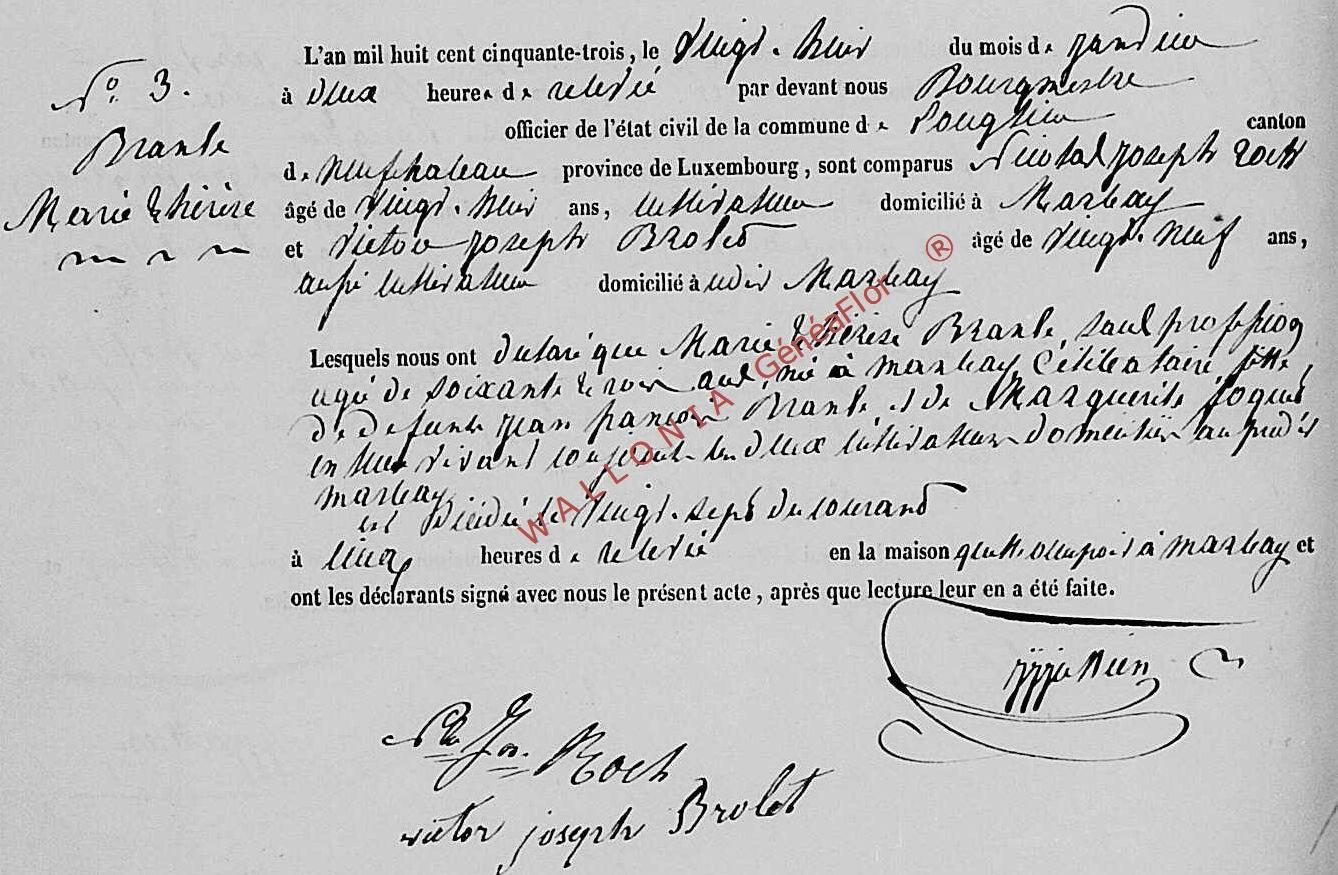 N.º 3.
Brante
Marie thérèse
L'an mil huit cent cinquante-trois, le Vingt-huit du mois de janvier
à deux heures de relevée par devant nous Bourgmestre
officier de l'état civil de la commune de Longlier canton
de Neufchateau province de Luxembourg, sont comparus Nicolas joseph Roch
âgé de Vingt-huit ans, cultivateur domicilié à Marbay
et Victor joseph Brolet âgé de Vingt-neuf ans,
aussi cultivateur domicilié à udit Marbay
Lesquels nous ont déclaré que Marie thérèse Brante, sans profession
agé de soixante trois ans, née à marbay, Célibataire, fille
de defunts jean françois Brante, et de Marguerite
en leur vivant conjoints tous deux cultivateurs domiciliés au predit
marbay
est Décédée le Vingt-sept du courant
à cinq heures de relevée en la maison qu'elle occupoit à marbay et
ont les déclarants signé avec nous le présent acte, après que lecture leur en a été faite.
Jos. Roch
victor joseph Brolet
WALLONIA GénéaFlor ®